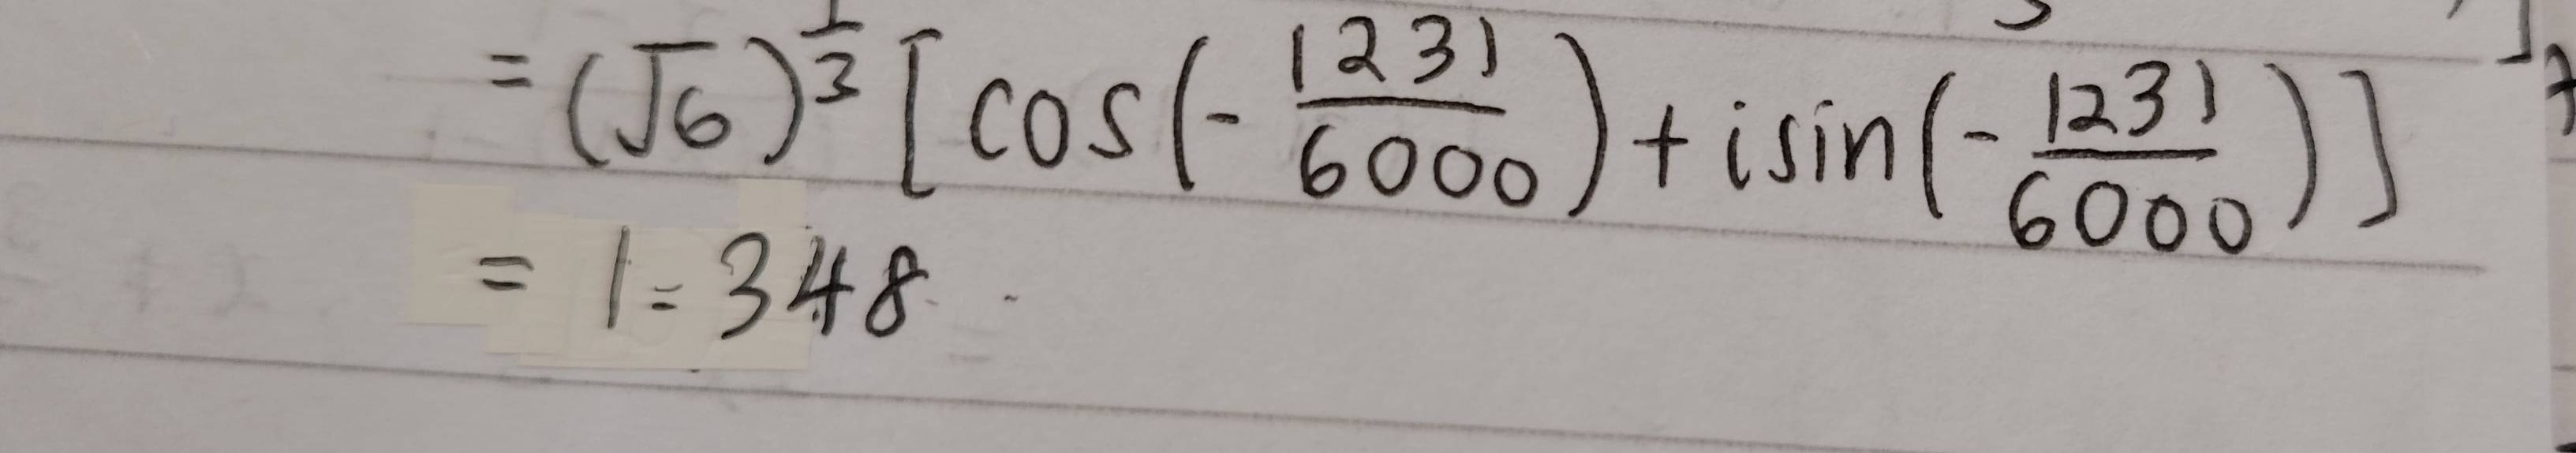 = (√6)^{1/3} [cos(-1231/6000) + i sin(-1231/6000)]
= 1.348